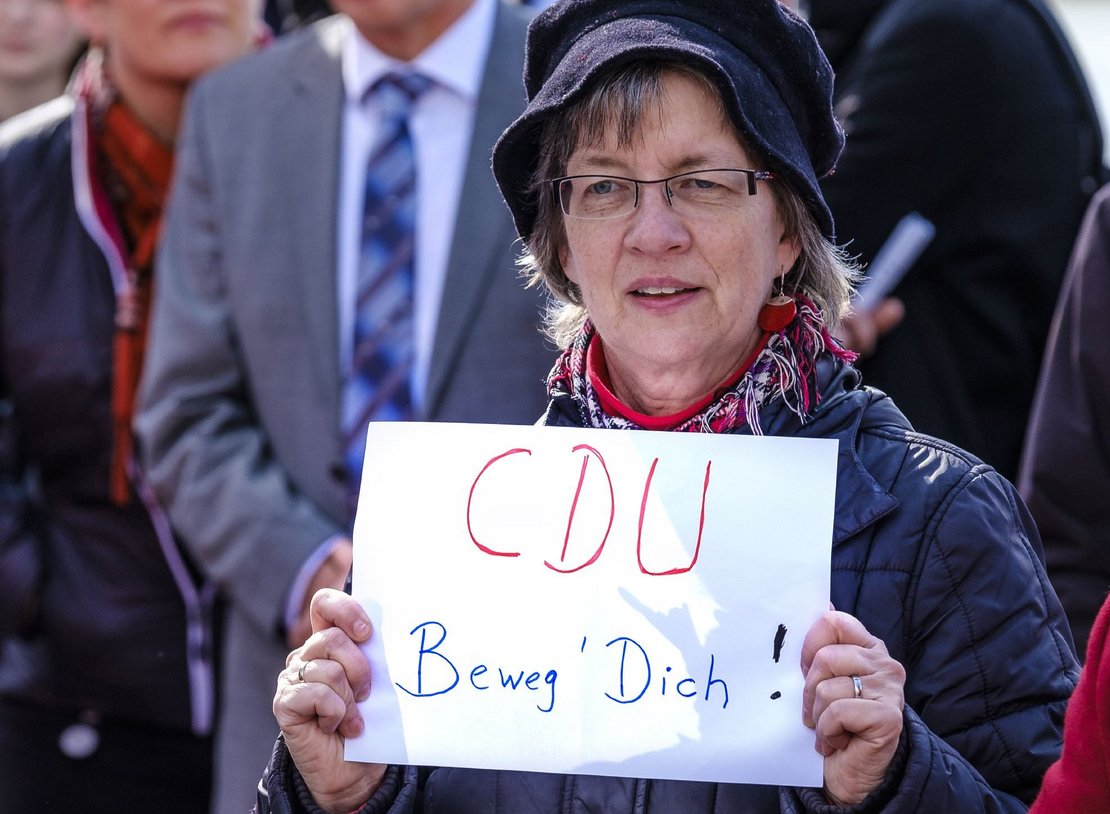 CDU
Beweg' Dich!